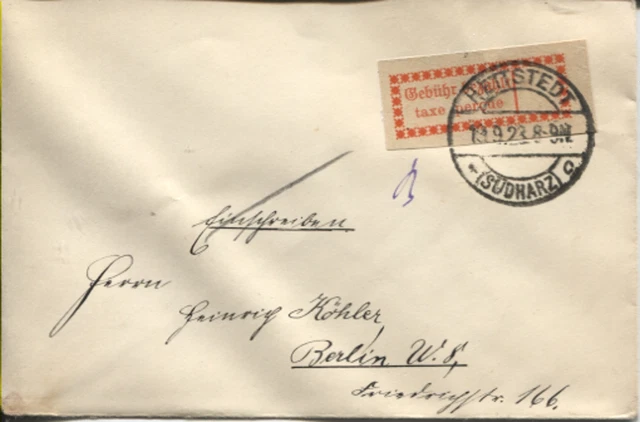 Gebühr
taxe perçue
HETTSTEDT
9.23 8-9N
(SÜDHARZ)
Einschreiben.
Herrn
Heinrich Köhler,
Berlin W. 8,
Friedrichstr. 166.